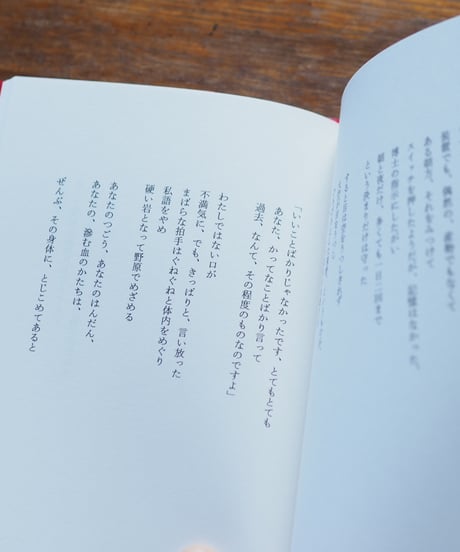 装置でも、偶然の、産物でもなくて
ある朝方、それをみつけて
スイッチを押したようだが、記憶はなかった、
博士の指示にしたがい
朝と夜だけ、多くても一、二回まで
という決まりだけは守った
「いいことばかりじゃなかったです、とてもとても
あなた、かってなことばかり言って
過去、なんて、その程度のものなのですよ」
わたしではない口が
不満気に、でも、きっぱりと、言い放った
まばらな拍手はぐねぐねと体内をめぐり
私語をやめ
硬い岩となって野原でめざめる
あなたのつごう、あなたのはんだん、
あなたの、滲む血のかたちは、
ぜんぶ、その身体に、とじこめてあると